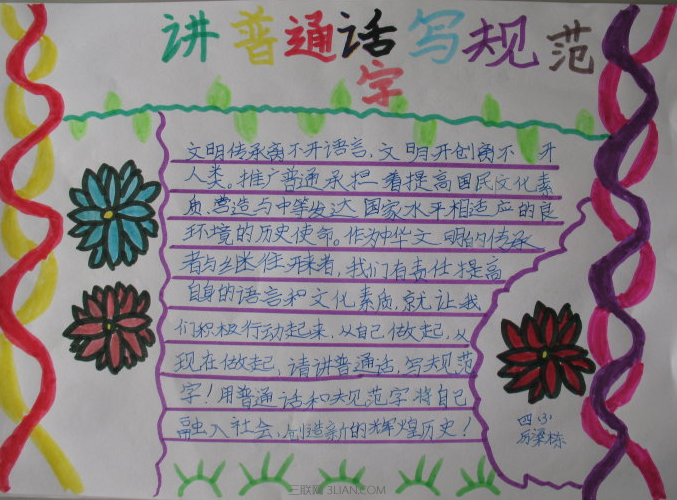 讲普通话写规范
字
文明传承离不开语言，文明开创离不开
人类。推广普通承担着提高国民文化素
质、营造与中等发达国家水平相适应的良
环境的历史使命。作为中华文明的传承
者与继任开来者，我们有责任提高
自身的语言和文化素质，就让我
们积极行动起来，从自己做起，从
现在做起，请讲普通话，写规范
字！用普通话和规范字将自己
融入社会，创造新的辉煌历史！
三联网 3LIAN.COM